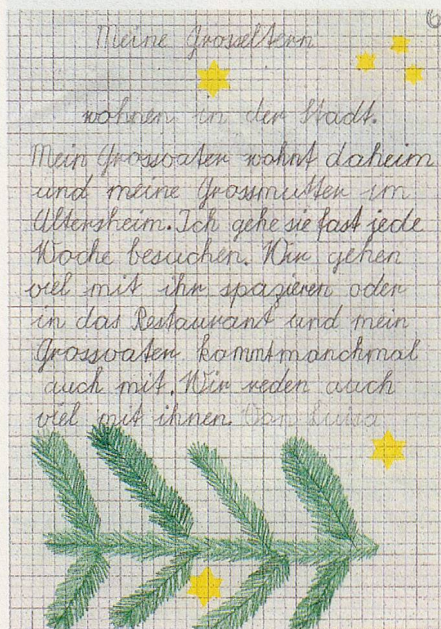 6
Meine Grosseltern
wohnen in der Stadt.
Mein Grossvater wohnt daheim
und meine Grossmutter im
Altersheim. Ich gehe sie fast jede
Woche besuchen. Wir gehen
viel mit ihr spazieren oder
in das Restaurant und mein
Grossvater kommt manchmal
auch mit. Wir reden auch
viel mit ihnen. Von Luisa